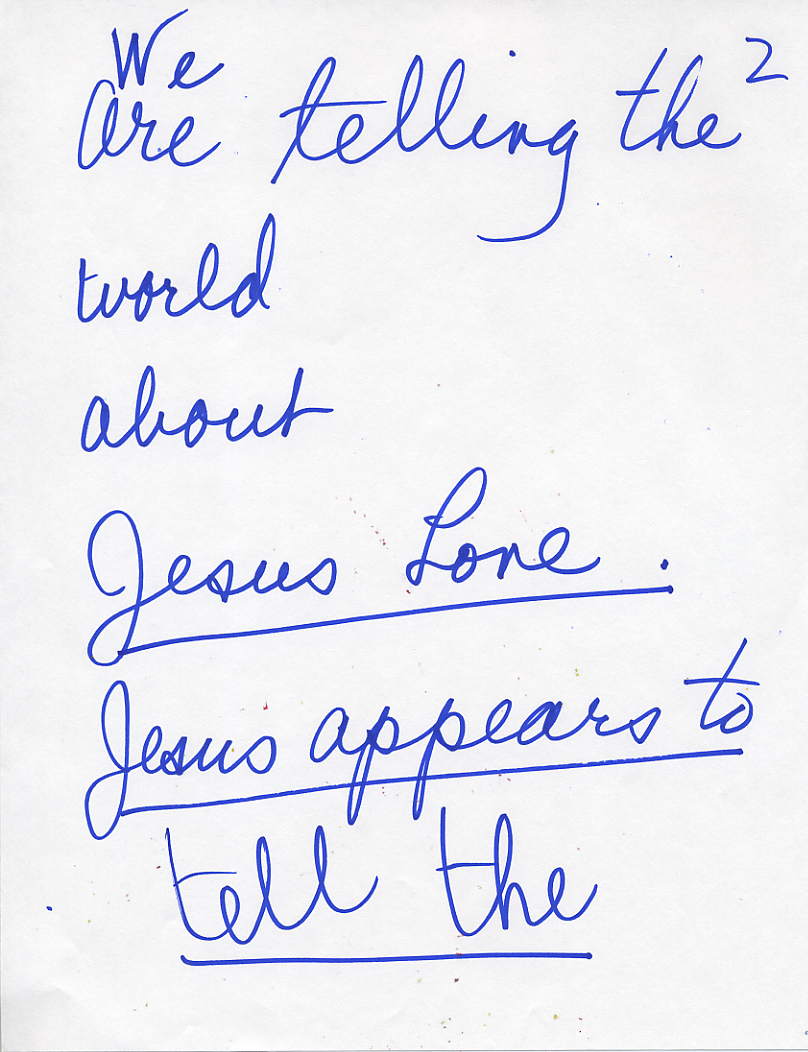 We
2
are telling the
world
about
Jesus Love.
Jesus appears to
tell the